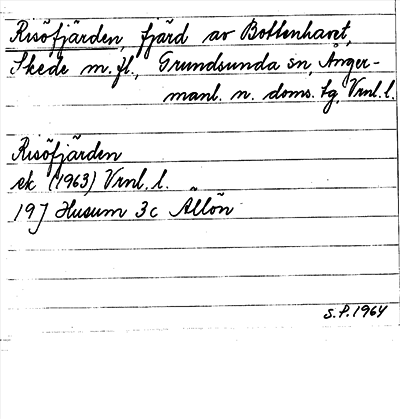 Risöfjärden, fjärd av Bottenhavet,
Skede m.fl., Grundsunda sn, Ånger-
manl. n. doms. tg, Vrnl. l.
Risöfjärden
ek (1963) Vrnl. l.
19J Husum 3c Ällön
S.P. 1964